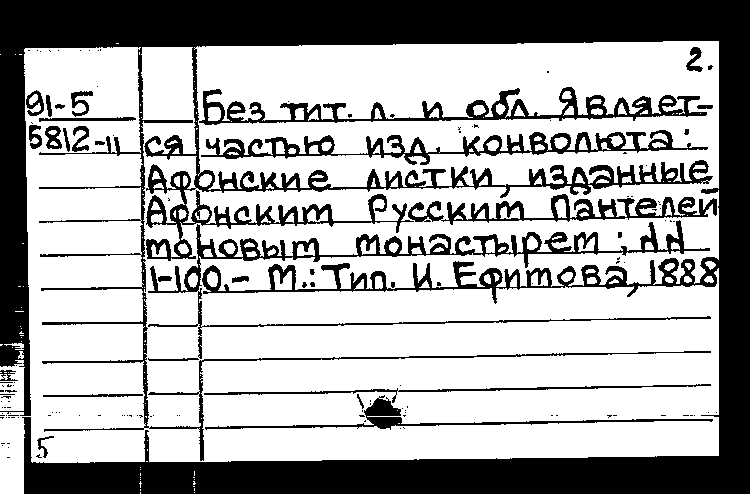 2.
91-5 Без тит. л. и обл. Являет-
5812-11 ся частью изд. конволюта:
Афонские листки, изданные
Афонским Русским Пантелей
моновым монастырем; №№
1-100.- М.: Тип. И. Ефимова, 1888
5